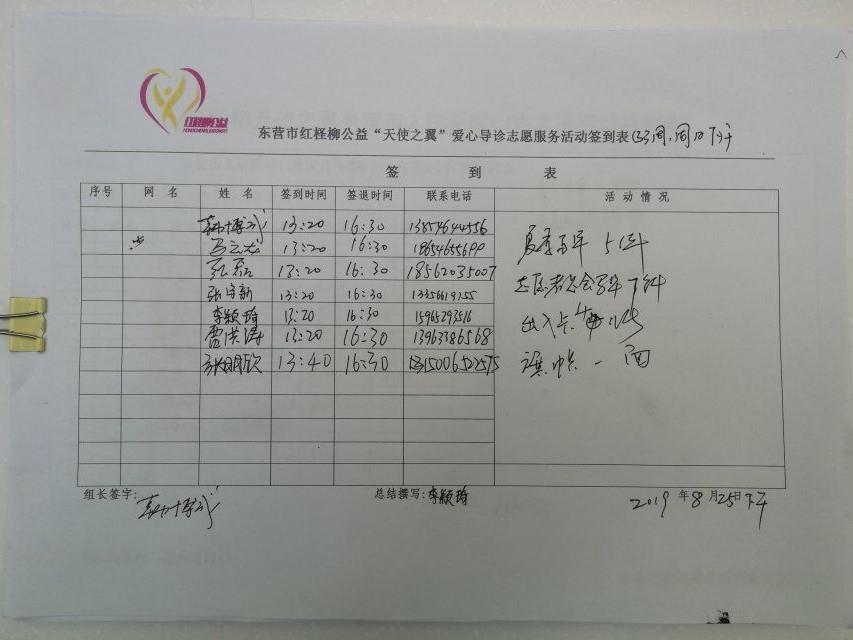 红柽柳公益
东营市红柽柳公益“天使之翼”爱心导诊志愿服务活动签到表(33周,周日下午
签 到 表
序号 网 名 姓 名 签到时间 签退时间 联系电话 活 动 情 况
13:20 16:30 13854644556
13:20 16:30 18654655699
张磊 13:20 16:30 18562035007
张守新 13:20 16:30 13356619755
李颖琦 13:20 16:30 15965293516
雷洪涛 13:20 16:30 13963386568
张明欣 13:40 16:30 15006522575
夏季马甲 5件
志愿者马甲 7件
出入卡 11张
旗帜一面
组长签字: 总结撰写:李颖琦 2019 年 8 月 25 日下午